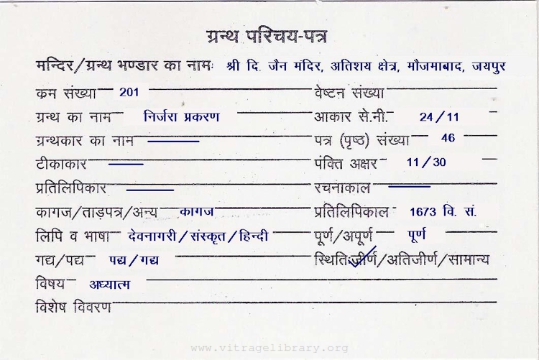 ग्रन्थ परिचय-पत्र
मन्दिर/ग्रन्थ भण्डार का नामः श्री दि. जैन मंदिर, अतिशय क्षेत्र, मौजमाबाद, जयपुर
कन संख्या 201 वेष्टन संख्या
ग्रन्थ का नाम निर्जरा प्रकरण आकार से.मी. 24/11
ग्रन्थकार का नाम पत्र (पृष्ठ) संख्या 46
टीकाकार पंक्ति अक्षर 11/30
प्रतिलिपिकार रचनाकाल
कागज/ताड़पत्र/अन्य कागज प्रतिलिपिकाल 1673 वि. सं.
लिपि व भाषा देवनागरी/संस्कृत/हिन्दी पूर्ण/अपूर्ण पूर्ण
गद्य/पद्य पद्य/गद्य स्थितिःजीर्ण/अतिजीर्ण/सामान्य
विषय अध्यात्म
विशेष विवरण
www.vitragelibrary.org